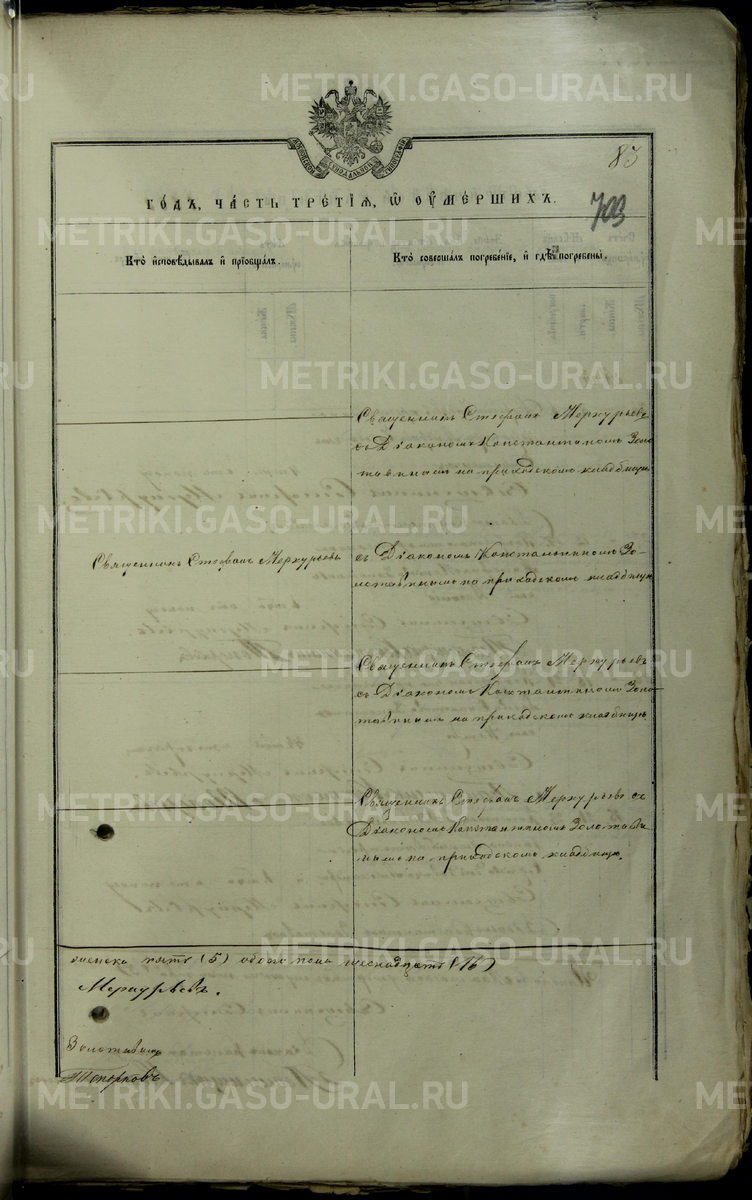 83
703
МОСКОВСКОЙ СѴНОДАЛЬНОЙ ТИПОГРАФІИ
ГО́ДЪ, ЧА́СТЬ ТРЕ́ТІЯ, Ѿ ОУМЕ́РШИХЪ.
Кто̀ и҆сповѣ́дывалъ и҆ пріѡбща́лъ.
Кто̀ соверша́лъ погребе́ніе, и҆ гдѣ̀ погребены̀.
Священникъ Стефанъ Меркурьевъ
съ Діакономъ Константиномъ Золо-
тавинымъ на приходскомъ кладбищѣ
Священникъ Стефанъ Меркурьевъ
съ Діакономъ Константиномъ Зо-
лотавинымъ на приходскомъ кладбищѣ
Священникъ Стефанъ Меркурьевъ
съ Діакономъ Константиномъ Золо-
тавинымъ на приходскомъ кладбищѣ
Священникъ Стефанъ Меркурьевъ съ
Діакономъ Константиномъ Золотави-
нымъ на приходскомъ кладбищѣ.
женска пять (5) обоего пола шеснадцать (16)
Меркурьевъ.
Золотавинъ
Топорковъ
METRIKI.GASO-URAL.RU